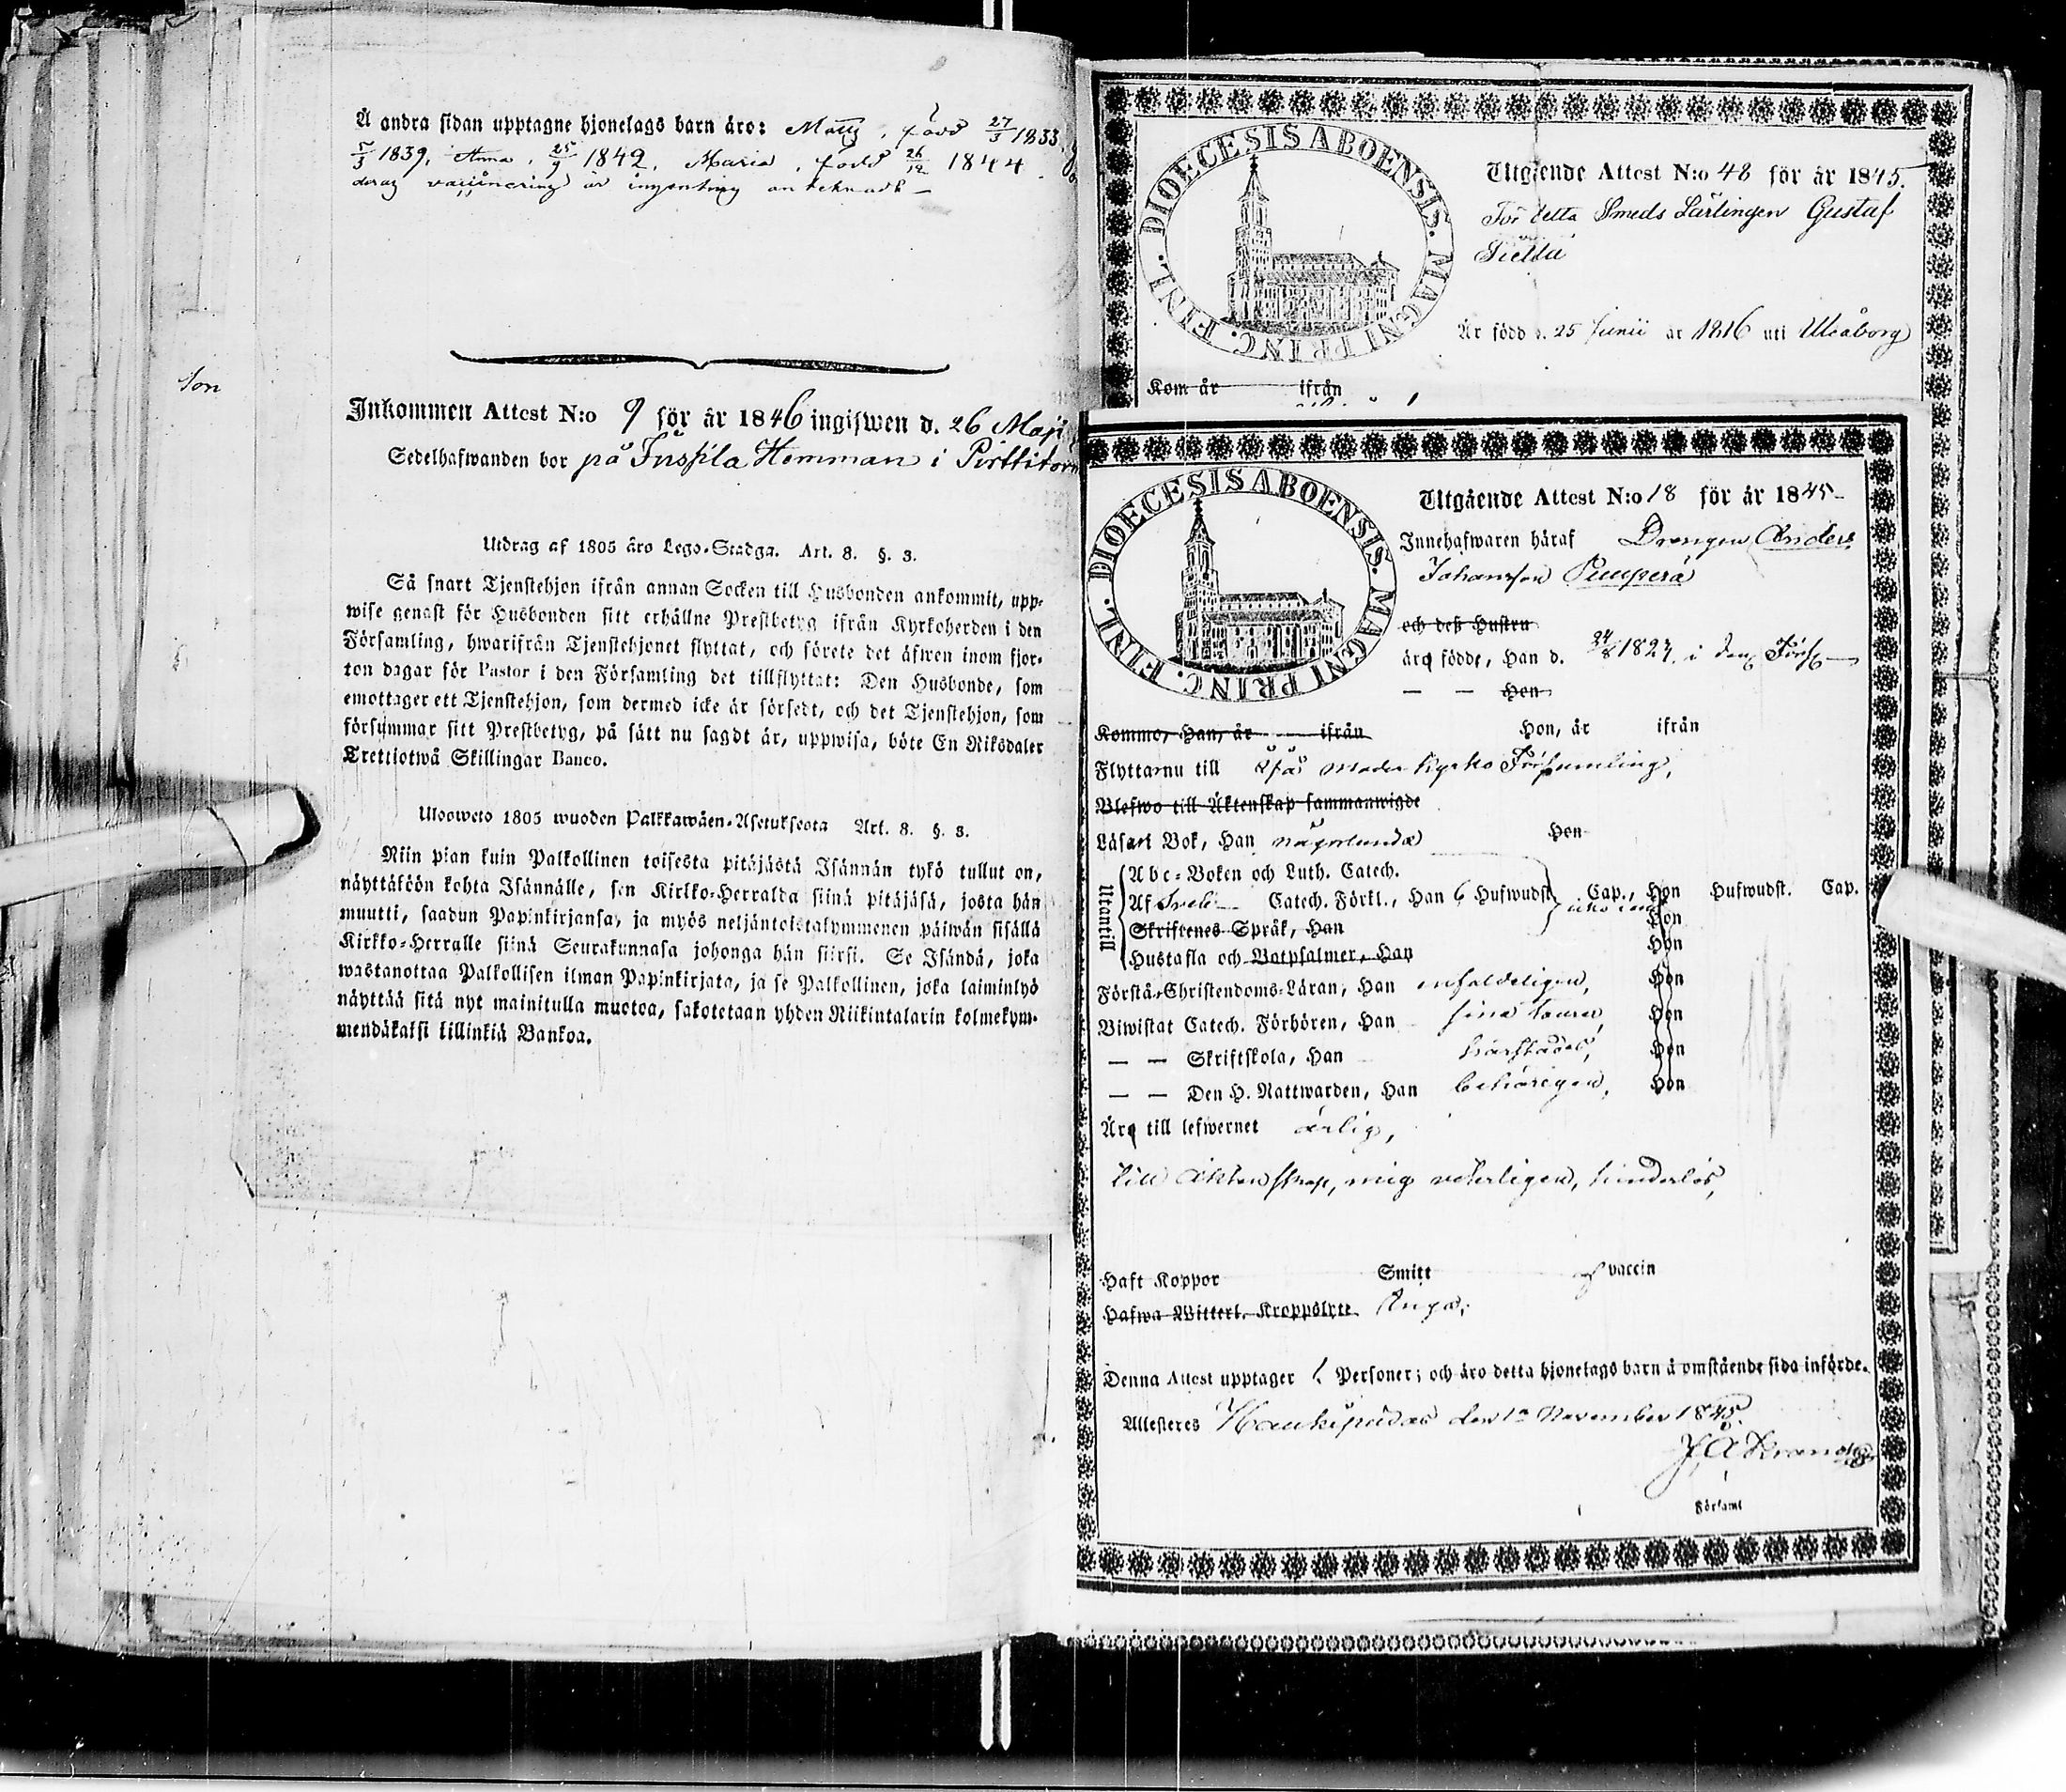 Å andra sidan upptagne hjonelags barn äro: Matts, född 27/3 1833,
5/3 1839, Anna, 25/9 1842, Maria, född 26/12 1844
deras vaccinering är ingenting antecknadt —
Son
Inkommen Attest N:o 9 för år 1846 ingifwen d. 26 Maji
Sedelhafwanden bor på Juspila Hemman i Pirttitorn
Utdrag af 1805 åro Lego-Stadga. Art. 8. §. 3.
Så snart Tjenstehjon ifrån annan Socken till Husbonden ankommit, upp-
wise genast för Husbonden sitt erhållne Prestbetyg ifrån Kyrkoherden i den
Församling, hwarifrån Tjenstehjonet flyttat, och förete det äfwen inom fjor-
ton dagar för Pastor i den Församling det tillflyttat: Den Husbonde, som
emottager ett Tjenstehjon, som dermed icke är försedt, och det Tjenstehjon, som
försummar sitt Prestbetyg, på sätt nu sagdt är, uppwisa, böte En Riksdaler
Trettiotwå Skillingar Banco.
Ulooweto 1805 wuoden Palkkawäen-Asetuksesta Art. 8. §. 3.
Niin pian kuin Palkollinen toisesta pitäjästä Isännän tykö tullut on,
näyttäköön kohta Isännälle, sen Kirkko-Herralda siinä pitäjäsä, josta hän
muutti, saadun Papinkirjansa, ja myös neljäntoistakymmenen päiwän sisällä
Kirkko-Herralle siinä Seurakunnasa johonga hän siirsi. Se Isändä, joka
wastanottaa Palkollisen ilman Papinkirjata, ja se Palkollinen, joka laiminlyö
näyttää sitä nyt mainitulla muotoa, sakotetaan yhden Riikintalarin kolmekym-
mendäkaksi killinkiä Bankoa.
DIOECESIS ABOENSIS. MAGNI PRINC. FINL.
Utgående Attest N:o 48 för år 1845.
För detta Smeds Lärlingen Gustaf
Är född d. 25 Junii år 1816 uti Uleåborg
Kom år ifrån
DIOECESIS ABOENSIS. MAGNI PRINC. FINL.
Utgående Attest N:o 18 för år 1845
Innehafwaren häraf Drengen Anders
Johansson Puuperä
och deß Hustru
äro födde, Han d. 24/8 1827, i denna Förs.
— — Hon
Kommo, Han, år ifrån Hon, år ifrån
Flytta nu till Kjās moder Kyrko Församling,
Blefwo till Äktenskap sammanwigde
Läsa i Bok, Han någorlunda Hon
Utantill
Abc-Boken och Luth. Catech.
Af Sveb. Catech. Förkl., Han 6 Hufwudst. Cap., Hon Hufwudst. Cap.
Skriftenes Språk, Han Hon
Hustafla och Botpsalmer, Han Hon
Förstå Christendoms-Läran, Han enfaldeligen, Hon
Biwistat Catech. Förhören, Han sina Hon
— — Skriftskola, Han Hon
— — Den H. Nattwarden, Han behörigen, Hon
Äro till lefwernet ärlig,
till Äktenskap, mig veterligen, hinderlös,
Haft Koppor Smitt af vaccin
Hafwa Witterl. Kroppslyte Inga.
Denna Attest upptager 1 Personer; och äro detta hjonelags barn å omstående sida införde.
Attesteres Haukipudas den 1a November 1845.
Församl